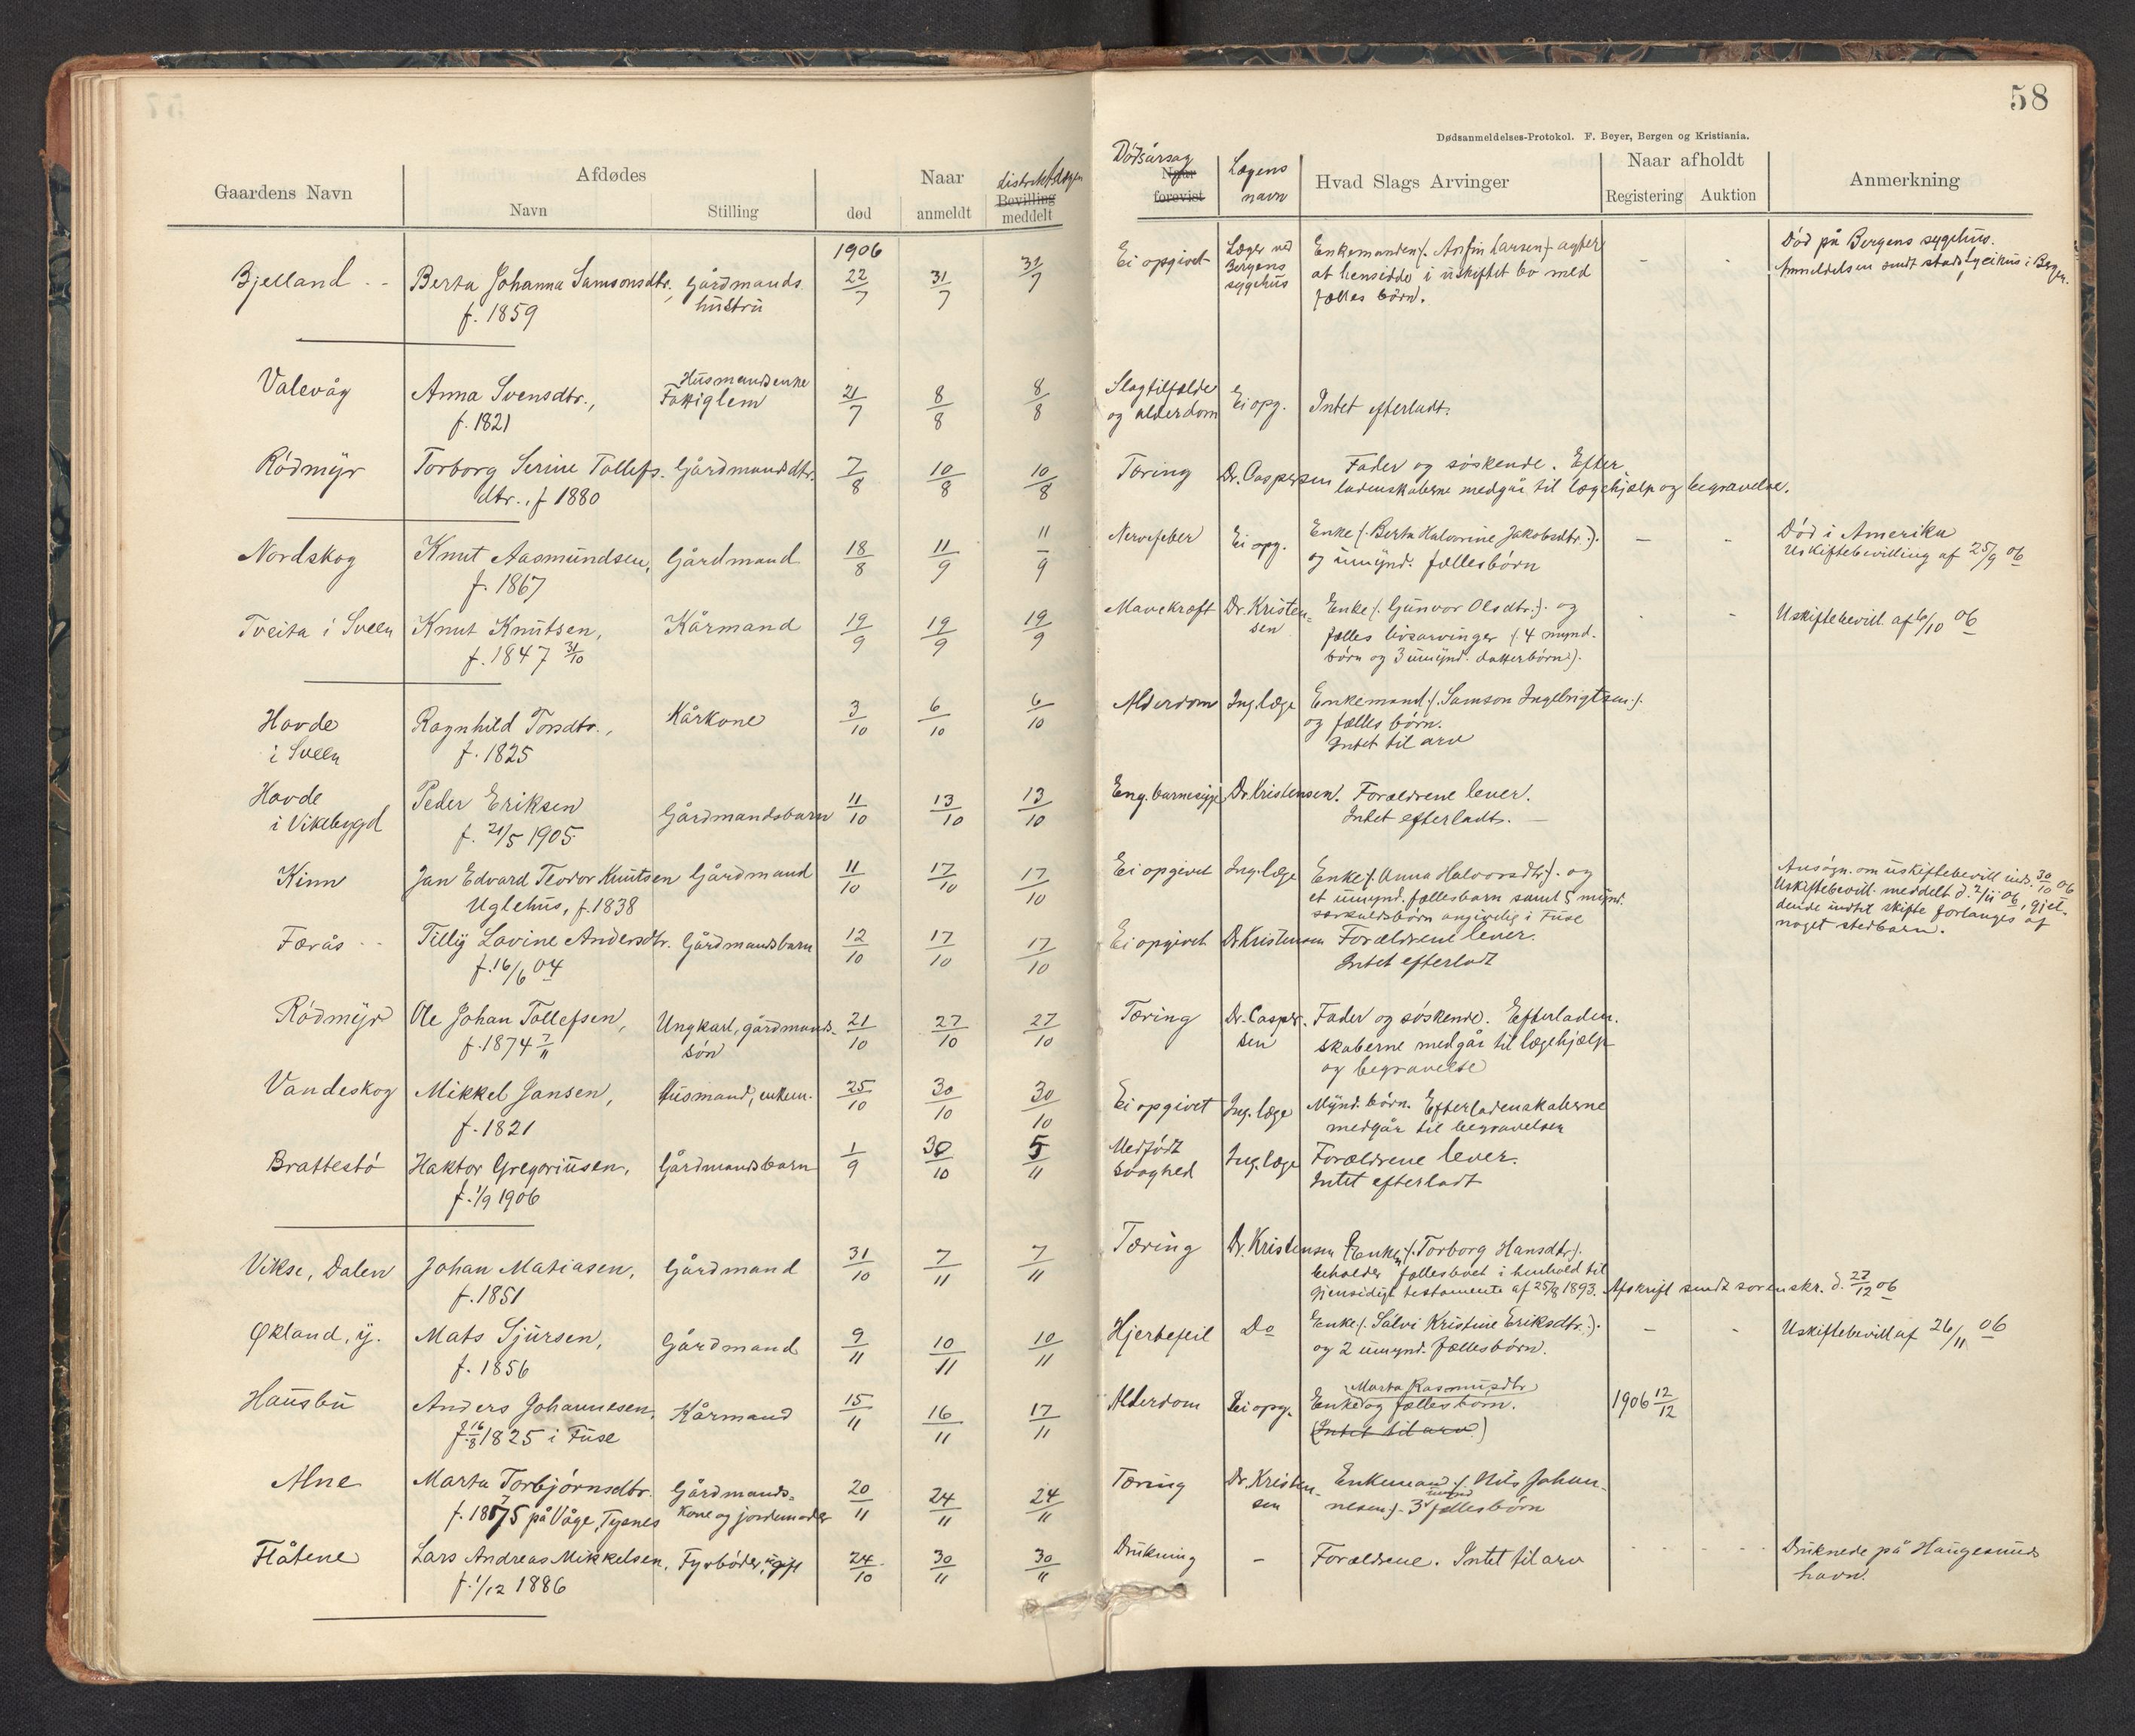 58
Dødsanmeldelses-Protokol. F. Beyer, Bergen og Kristiania.
Gaardens Navn | Afdødes Navn | Stilling | Naar død | anmeldt | distriktslægen Bevilling meddelt | Dödsårsag Naar forevist | Lægens navn | Hvad Slags Arvinger | Naar afholdt Registering | Auktion | Anmerkning
1906
Bjelland | Berta Johanna Samsonsdtr. | Gårdmands | 22/7 | 31/7 | 31/7 | Ei opgivet | Læger ved | Enkemanden /. Anfin Larsen ./ agter | - | - | Död på Bergens sygehus.
f. 1859 | hustru | Bergens | at hensidde i uskiftet bo med | Anmeldelsen sendt stadsfysikus i Bergen.
sygehus | fælles börn.
Valevåg | Anna Svensdtr., | Husmandsenke | 21/7 | 8/8 | 8/8 | Slagtilfælde | Ei opg. | Intet efterladt.
f. 1821 | Fattiglem | og alderdom
Rödmyr | Torborg Serine Tollefs. | Gårdmandsdtr. | 7/8 | 10/8 | 10/8 | Tæring | Dr. Caspersen | Fader og söskende. Efter
dtr., f 1880 | ladenskaberne medgår til lægehjælp og begravelse.
Nordskog | Knut Aasmundsen, | Gårdmand | 18/8 | 11/9 | 11/9 | Nervefeber | Ei opg. | Enke /. Berta Halvorine Jakobsdtr. ./. | - | - | Död i Amerika
f. 1867 | og umynd. fællesbörn | Uskiftebevilling af 25/9 06
Tveita i Sveen | Knut Knutsen, | Kårmand | 19/9 | 19/9 | 19/9 | Mavekræft | Dr. Kristen= | Enke /. Gunvor Olsdtr. ./. og | - | - | Uskiftebevill. af 6/10 06
f. 1847 31/10 | sen | fælles livsarvinger (. 4 mynd.
börn og 3 umynd. datterbörn ).
Hovde | Ragnhild Torsdtr., | Kårkone | 3/10 | 6/10 | 6/10 | Alderdom | Ing. læge | Enkemand /. Samson Ingebrigtsen ./.
i Sveen | f. 1825 | og fælles börn.
Intet til arv
Hovde | Peder Eriksen | Gårdmandsbarn | 11/10 | 13/10 | 13/10 | Eng. barnesyge | Dr. Kristensen. | Forældrene lever.
i Vikebygd | f. 21/5 1905 | Intet efterladt.
Kinn | Jan Edvard Teodor Knutsen | Gårdmand | 11/10 | 17/10 | 17/10 | Ei opgivet | Ing. læge | Enke /. Anna Halvorsdtr ./. og | Ansögn. om uskiftebevill. inds. 30/10 06
Uglehus, f. 1838 | et umynd. fællesbarn samt 5 mynd. | Uskiftebevill. meddelt d. 2/11 06, gjel-
særkuldsbörn angivelig i Fuse | dende indtil skifte forlanges af
noget stedbarn.
Færås | Tilly Lovine Andersdtr. | Gårdmandsbarn | 12/10 | 17/10 | 17/10 | Ei opgivet | Dr Kristensen | Forældrene lever.
f. 16/6 04 | Intet efterladt
Rödmyr | Ole Johan Tollefsen, | Ungkarl, gårdmands- | 21/10 | 27/10 | 27/10 | Tæring | Dr. Casper- | Fader og söskende. Efterladen-
f. 1874 7/11 | sön | sen | skaberne medgår til lægehjælp
og begravelse
Vandeskog | Mikkel Jansen, | Husmand, enkem. | 25/10 | 30/10 | 30/10 | Ei opgivet | Ing. læge | Mynd. börn. Efterladenskaberne
f. 1821 | medgår til begravelsen
Brattestö | Haktor Gregoriusen, | Gårdmandsbarn | 1/9 | 30/10 | 5/11 | Medfödt | Ing. læge | Forældrene lever.
f. 1/9 1906 | svaghed | Intet efterladt
Vikse, Dalen | Johan Matiasen, | Gårdmand | 31/10 | 7/11 | 7/11 | Tæring | Dr. Kristensen | Enken /. Torborg Hansdtr ./.
f. 1851 | beholder fællesboet i henhold til
gjensidigt testamente af 25/8 1893. Afskrift sendt sorenskr. d. 27/12 06
Økland, y. | Mats Sjursen, | Gårdmand | 9/11 | 10/11 | 10/11 | Hjertefeil | Do | Enke /. Sålvi Kristine Eriksdtr. ./. | - | - | Uskiftebevill af 26/11 06
f. 1856 | og 2 umynd. fællesbörn.
Hausbu | Anders Johannesen, | Kårmand | 15/11 | 16/11 | 17/11 | Alderdom | Ei opg. | Marta Rasmusdtr | 1906 12/12
f. 16/8 1825 i Fuse | Enke og fællesbörn.
(Intet til arv.)
Alne | Marta Torbjörnsdtr. | Gårdmands= | 20/11 | 24/11 | 24/11 | Tæring | Dr. Kristen- | Enkemand /. Nils Johan-
f. 1875 på Våge, Tysnes | kone og jordemoder | sen | nesen ./. 3 umynd fællesbörn
Flåtene | Lars Andreas Mikkelsen, | Fyrböder, ugift | 24/10 | 30/11 | 30/11 | Drukning | - | Forældrene. Intet til arv | Druknede på Haugesunds
f. 1/12 1886 | havn.